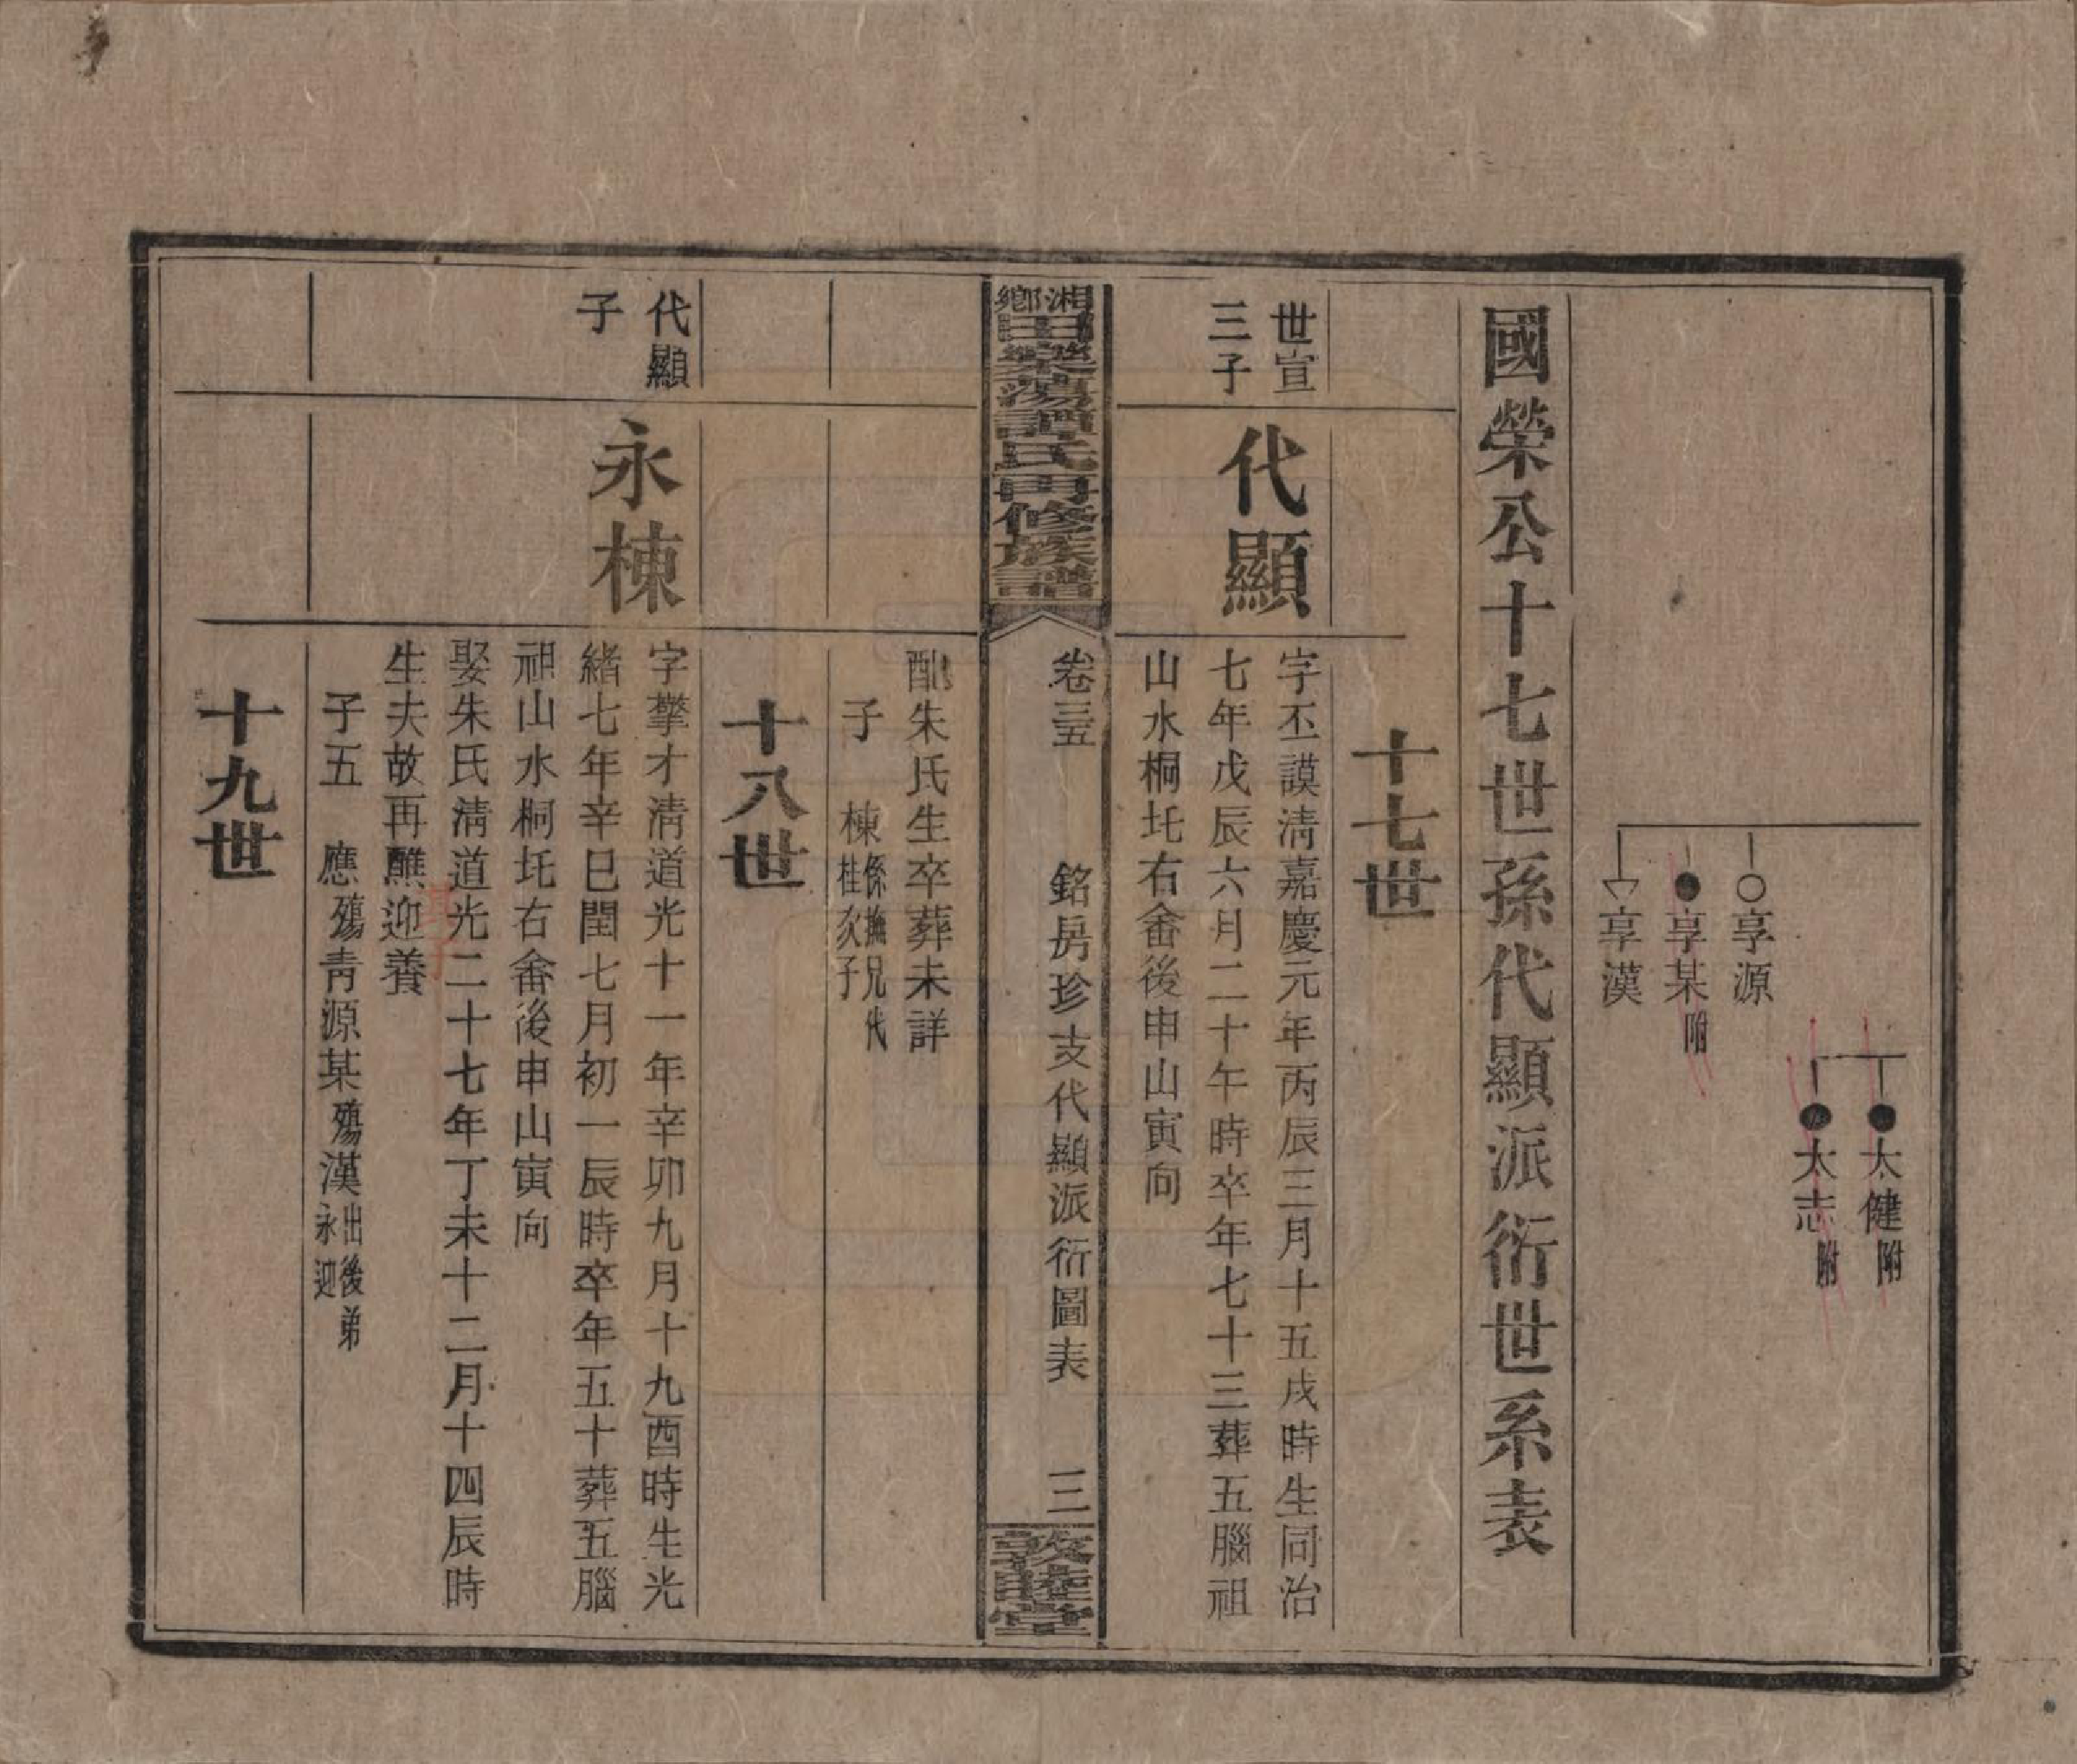 太健附
太志附
享源
享某附
享漢
國榮公十七世孫代顯派衍世系表
十七世
世宣
三子
代顯
字丕謨淸嘉慶元年丙辰三月十五戌時生同治
七年戊辰六月二十午時卒年七十三葬五腦祖
山水桐圫右畲後申山寅向
湘鄉田樂蕩譚氏再修族譜
卷三五
銘房珍支代顯派衍圖表
三
敦睦堂
配朱氏生卒葬未詳
子 棟係撫兄代桂次子
十八世
代顯
子
永棟
字擎才淸道光十一年辛卯九月十九酉時生光
緖七年辛巳閏七月初一辰時卒年五十葬五腦
祖山水桐圫右畲後申山寅向
娶朱氏淸道光二十七年丁未十二月十四辰時
生夫故再醮迎養
子五 應殤靑源某殤漢出後弟永迎
十九世